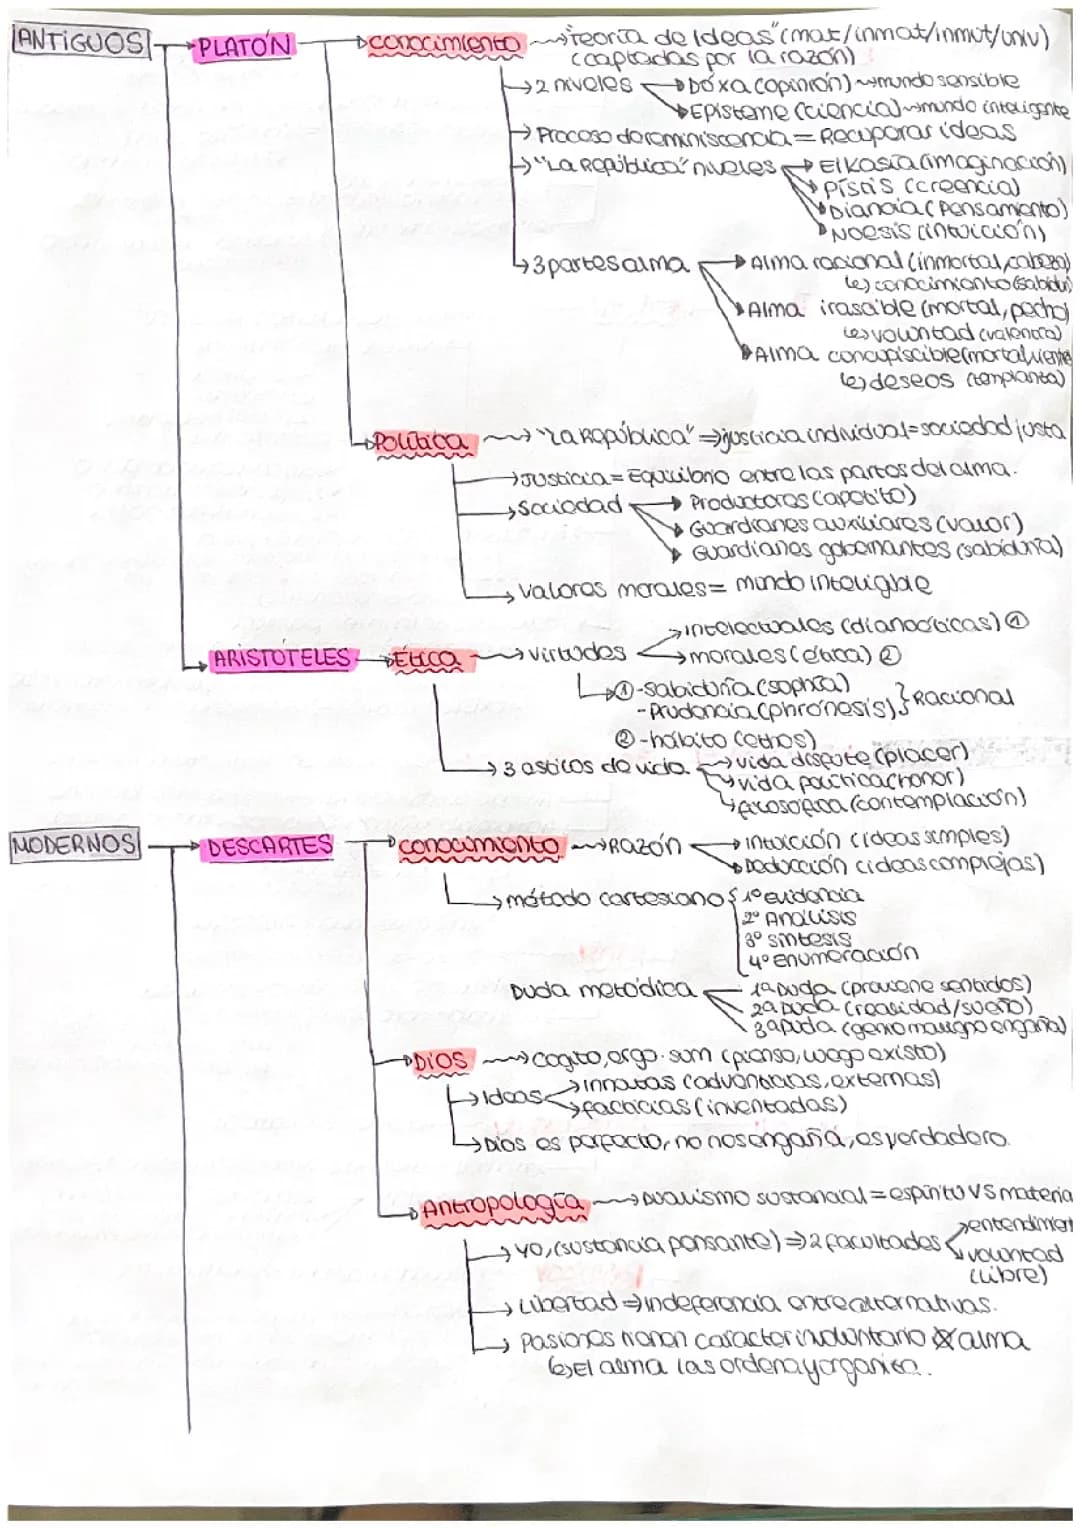 ANTIGUOS → PLATÓN → conocimiento → "Teoría de Ideas" (mat/inmat/inmut/univ)
(captadas por la razón)
→ 2 niveles → Dóxa (opinión) → mundo sensible
→ Episteme (ciencia) → mundo inteligente
→ Proceso de reminiscencia = Recuperar ideas
→ "La República" niveles → Eikasía (imaginación)
Pístis (creencia)
Dianoia (Pensamiento)
Noesis (intuición)
→ 3 partes alma → Alma racional (inmortal, cabeza)
↳ conocimiento (sabidu
Alma irascible (mortal, pecho)
↳ voluntad (valencia)
Alma concupiscible (mortal, vientre
↳ deseos (templanta)
Política → "La República" ⇒ justicia individual = sociedad justa
→ Justicia = Equilibrio entre las partes del alma.
→ Sociedad → Productores (apetito)
Guardianes auxiliares (valor)
Guardianes gobernantes (sabiduría)
→ valores morales = mundo inteligible
→ intelectuales (dianoéticas) ①
ARISTÓTELES → Ética → virtudes → morales (ética) ②
↳ ① - sabiduría (sophía)
- Prudencia (phrónesis) } Racional
② - hábito (ethos)
→ 3 asticos de vida → vida disfute (placer)
vida política (honor)
filosófica (contemplación)
MODERNOS → DESCARTES → conocimiento → Razón → intuición (ideas simples)
Deducción (ideas complejas)
→ método cartesiano { 1º evidencia
2º Análisis
3º síntesis
4º enumeración
Duda metódica 1ª Duda (proviene sentidos)
2ª Duda (realidad/sueño)
3ª Duda (genio maligno engaña)
DIOS → Cogito, ergo sum (pienso, luego existo)
→ Ideas → innatas (adventicias, externas)
→ facticias (inventadas)
→ Dios es perfecto, no nos engaña, es verdadero.
Antropología → Dualismo sustancial = espíritu VS materia
→ Yo, (sustancia pensante) ⇒ 2 facultades → entendimient
voluntad
(libre)
→ Libertad ⇒ indeferencia entre alternativas.
→ Pasiones tienen caracter involuntario alma
↳ El alma las ordena y organiza.